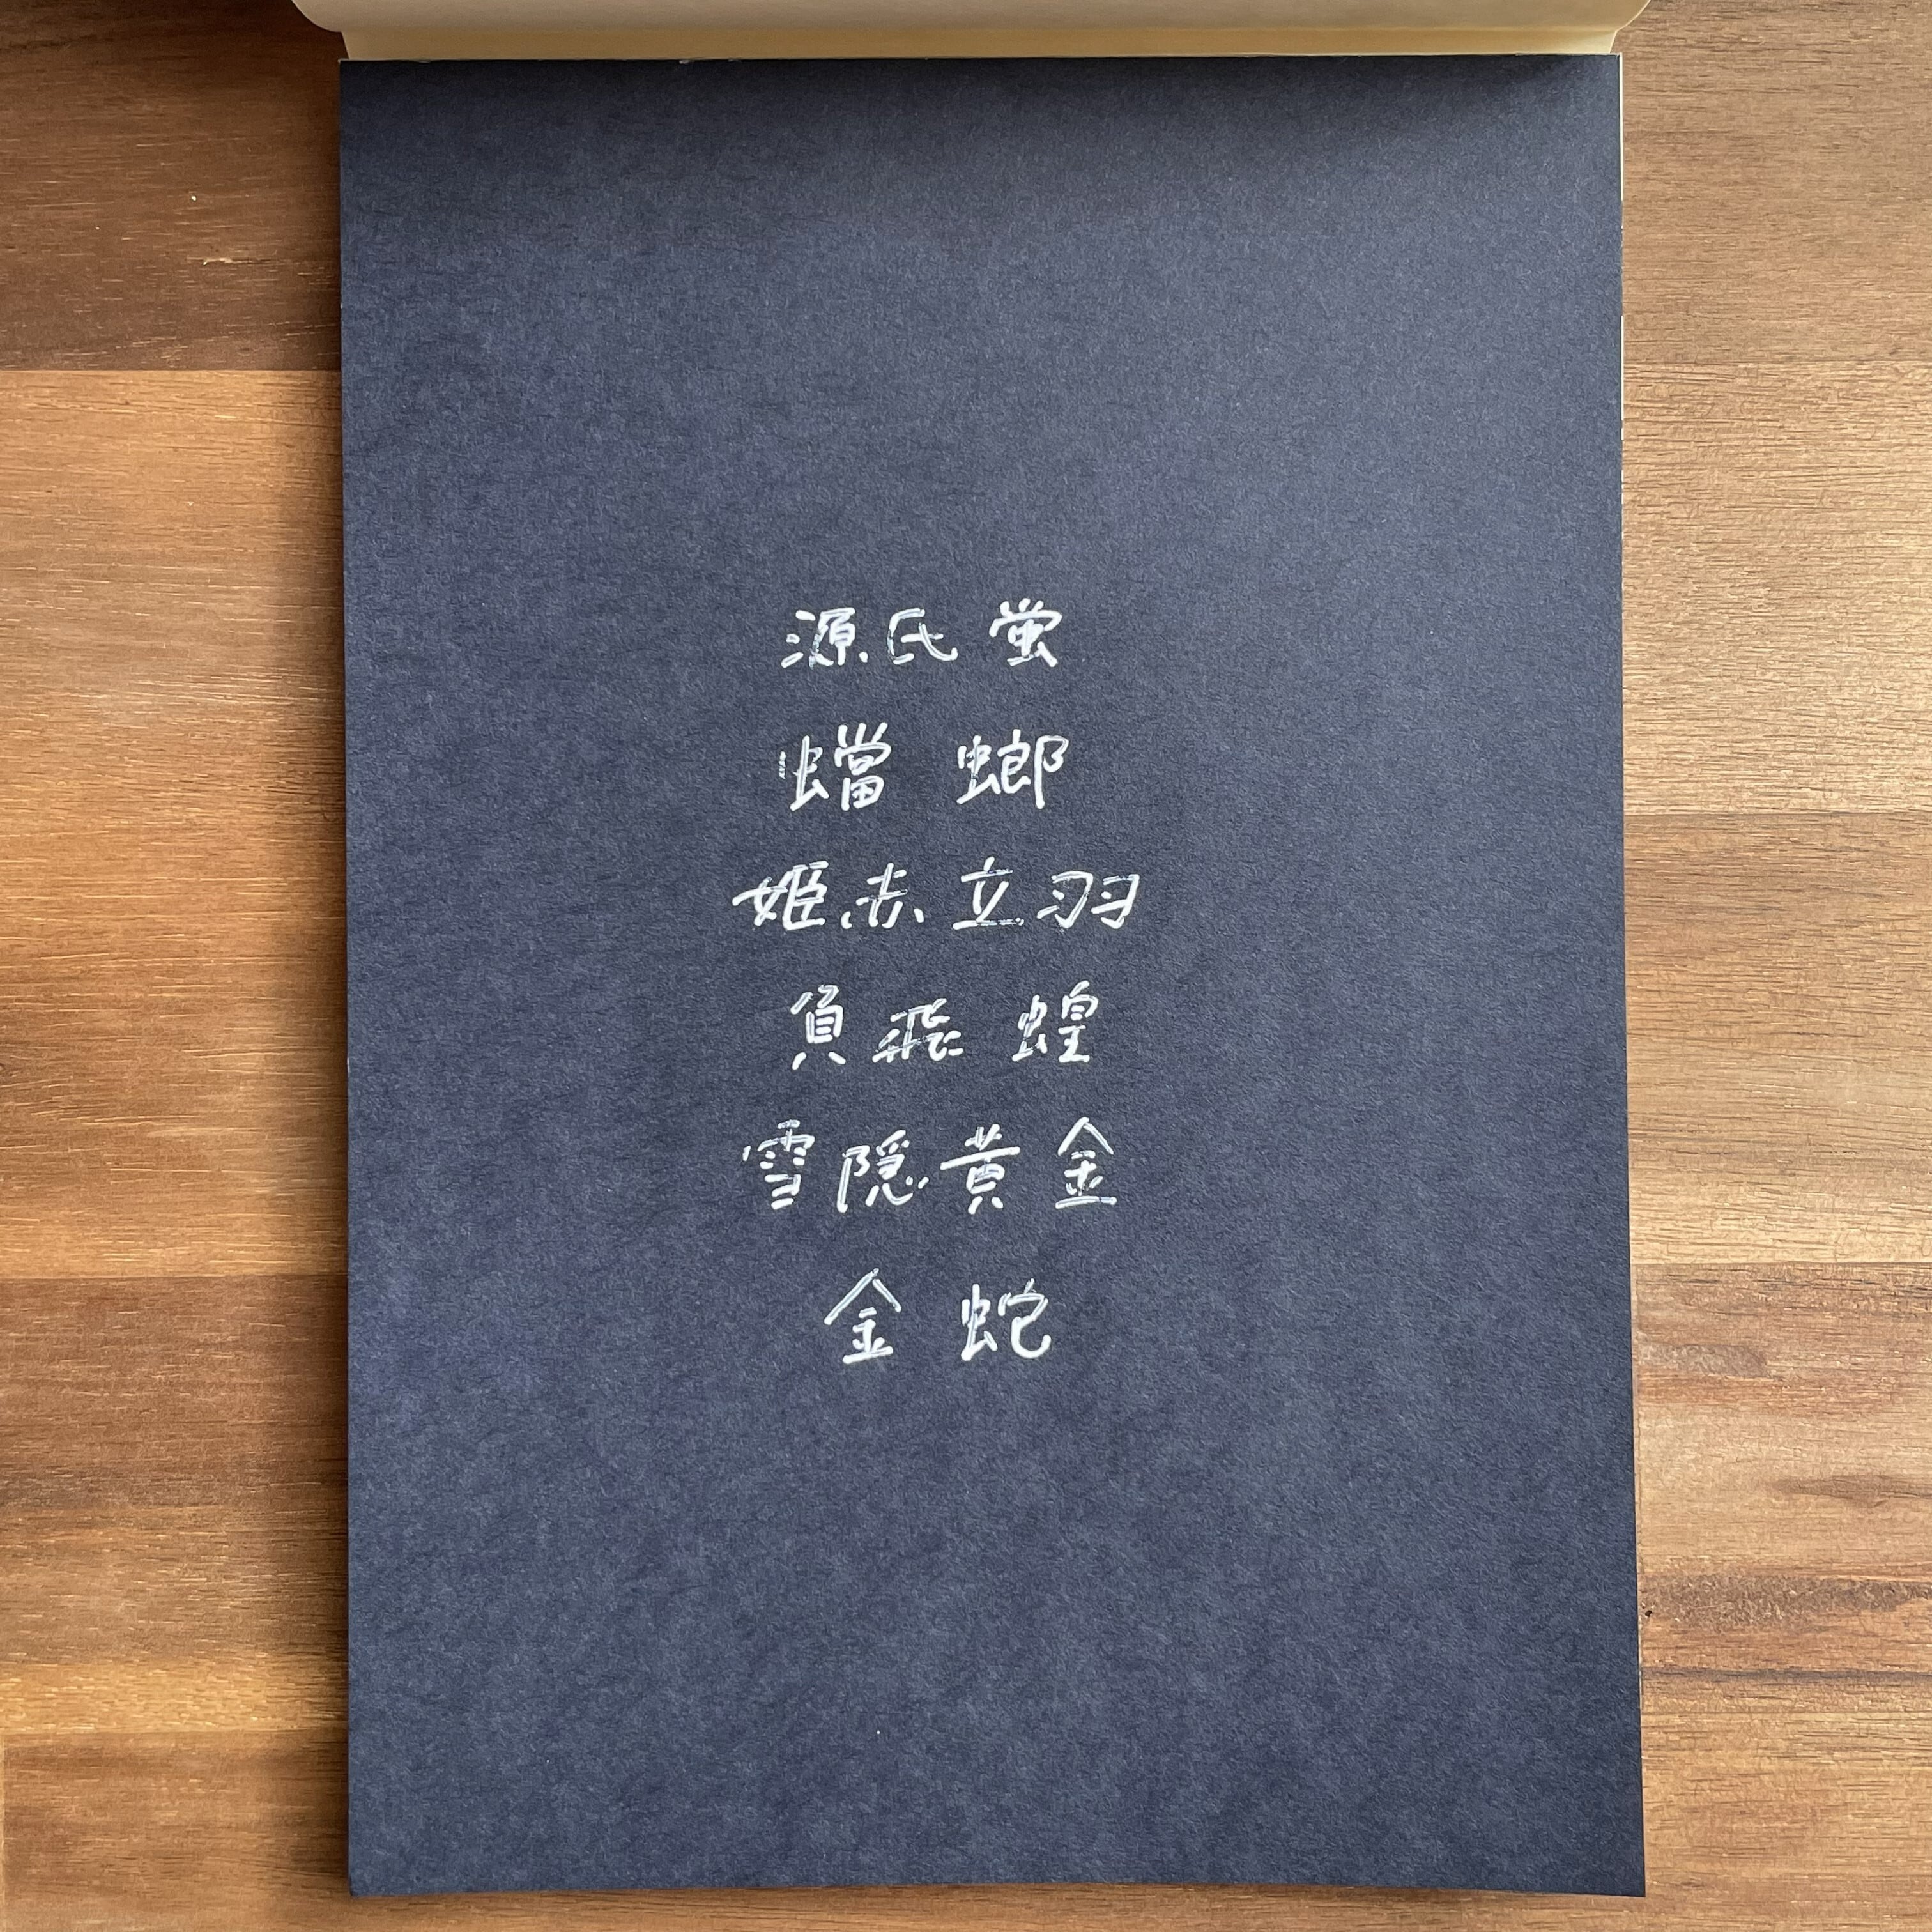 源氏蛍
蟷螂
姫赤立羽
負飛蝗
雪隠黄金
金蛇